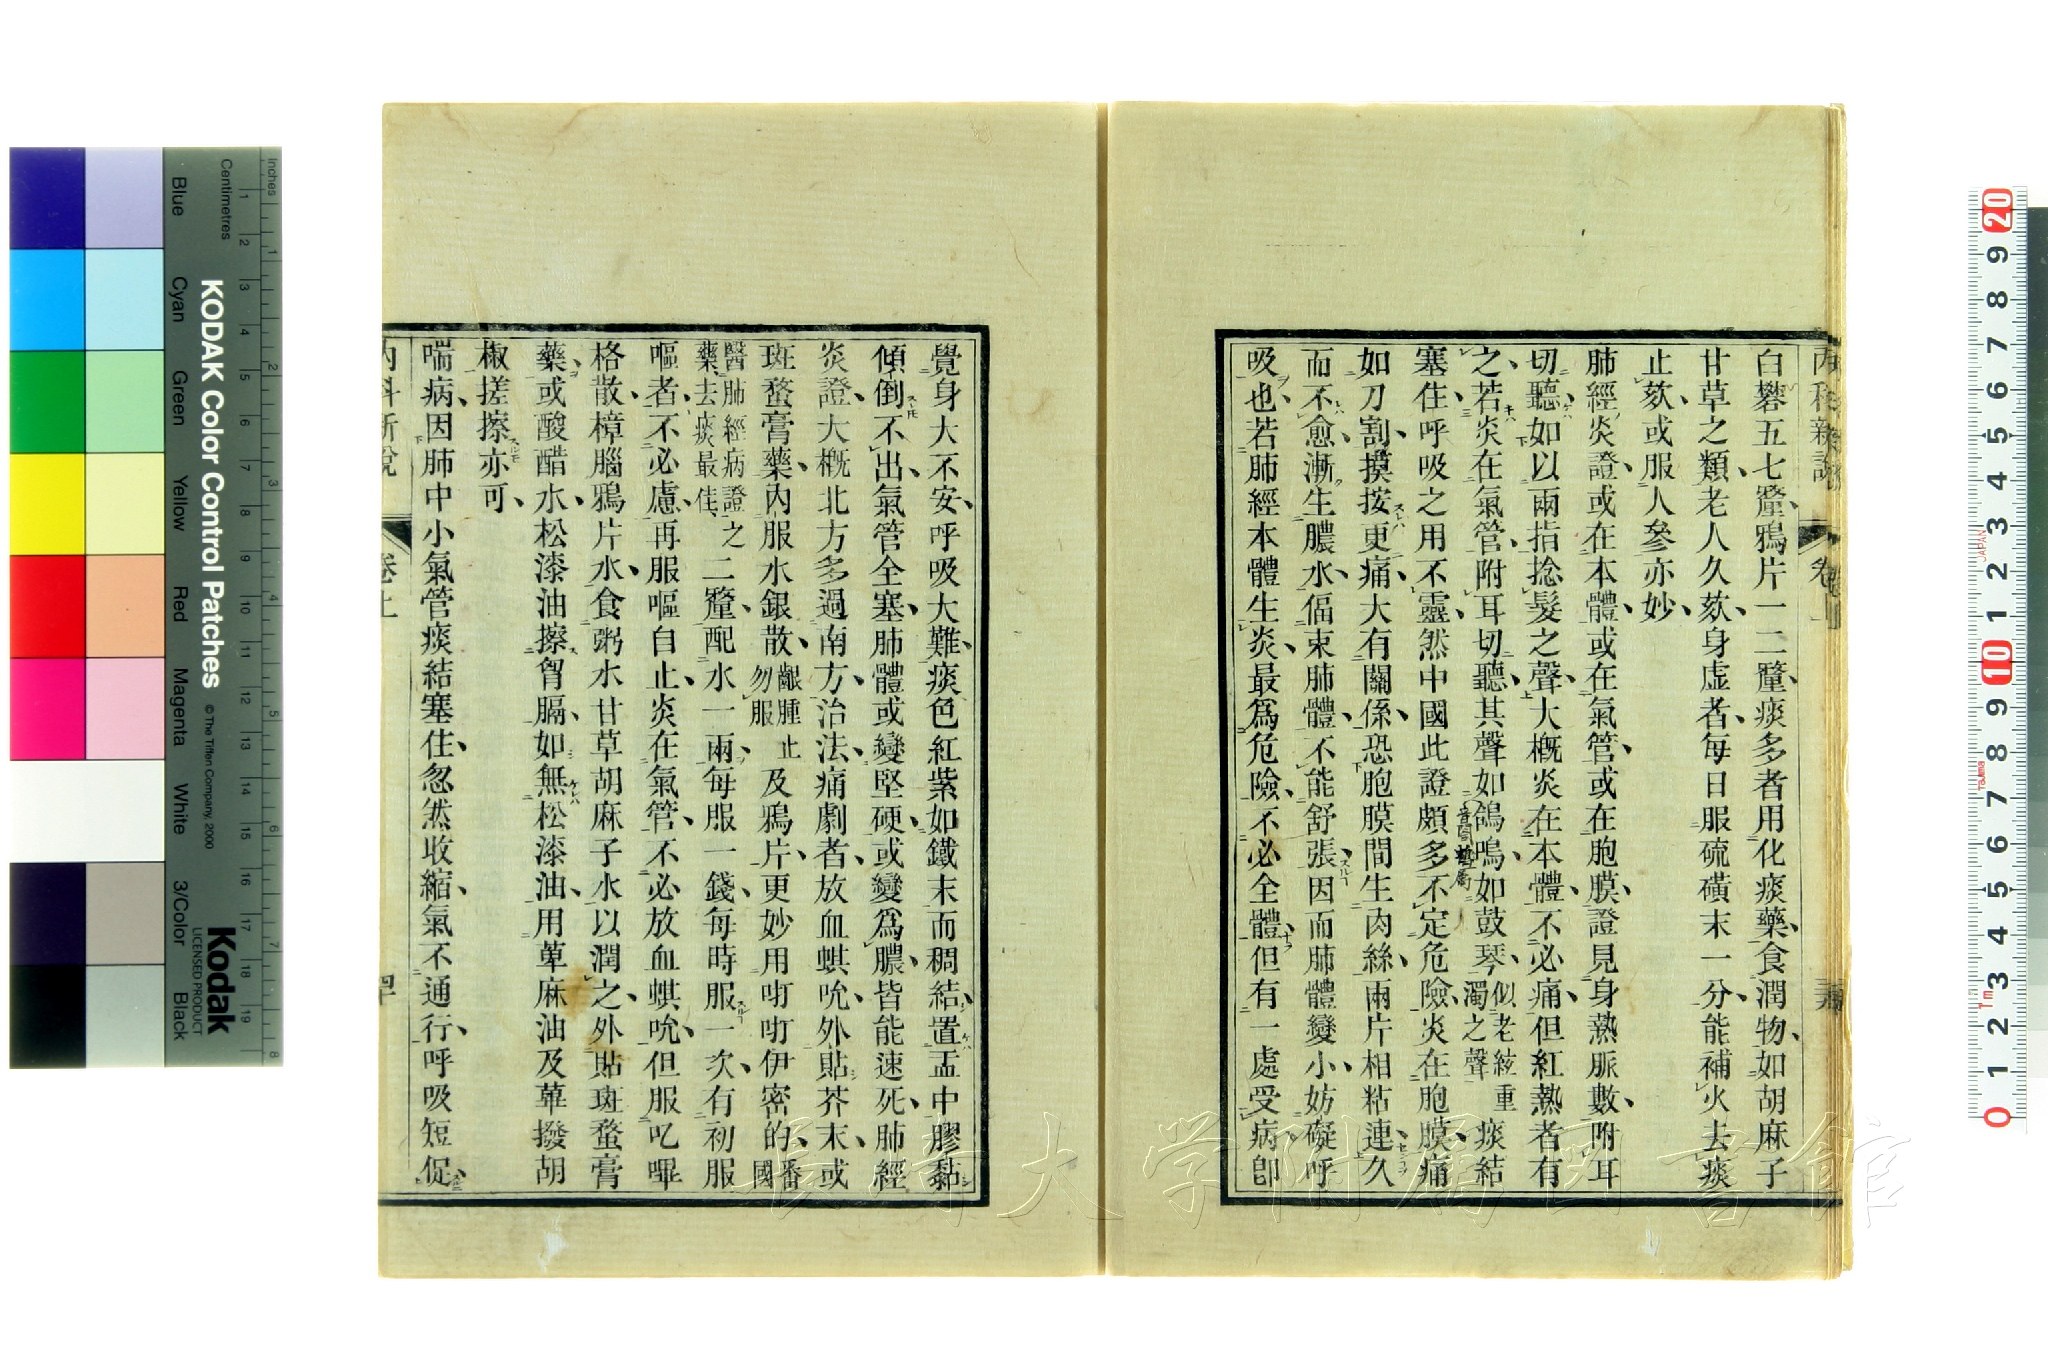 內科新說
卷上
白礬五七釐鴉片一二釐痰多者用化痰藥食潤物如胡麻子
甘草之類老人久欬身虛者每日服硫磺末一分能補火去痰
止欬或服人參亦妙
肺經炎證或在本體或在氣管或在胞膜證見身熱脈數附耳
切聽如以兩指捻髮之聲大概炎在本體不必痛但紅熱者有
之若炎在氣管附耳切聽其聲如鴿鳴如鼓琴似老絃重濁之聲痰結
塞住呼吸之用不靈然中國此證頗多不定危險炎在胞膜痛
如刀割摸按更痛大有關係恐胞膜間生肉絲兩片相粘連久
而不愈漸生膿水偪束肺體不能舒張因而肺體變小妨礙呼
吸也若肺經本體生炎最爲危險不必全體但有一處受病卽
覺身大不安呼吸大難痰色紅紫如鐵末而稠結置盂中膠黏
傾倒不出氣管全塞肺體或變堅硬或變爲膿皆能速死肺經
炎證大概北方多過南方治法痛劇者放血蜞吮外貼芥末或
斑蝥膏藥內服水銀散齦腫止勿服及鴉片更妙用吖吖伊密的番國
醫肺經病證之藥去痰最佳二釐配水一兩每服一錢每時服一次有初服
嘔者不必慮再服嘔自止炎在氣管不必放血蜞吮但服叱嗶
格散樟腦鴉片水食粥水甘草胡麻子水以潤之外貼斑蝥膏
藥或酸醋水松漆油擦胷膈如無松漆油用萆麻油及蓽撥胡
椒搓擦亦可
喘病因肺中小氣管痰結塞住忽然收縮氣不通行呼吸短促
內科新說
卷上
KODAK Color Control Patches
© The Tiffen Company, 2000
Kodak
LICENSED PRODUCT
Inches
Centimetres
Blue
Cyan
Green
Yellow
Red
Magenta
White
3/Color
Black
長崎大学附属図書館